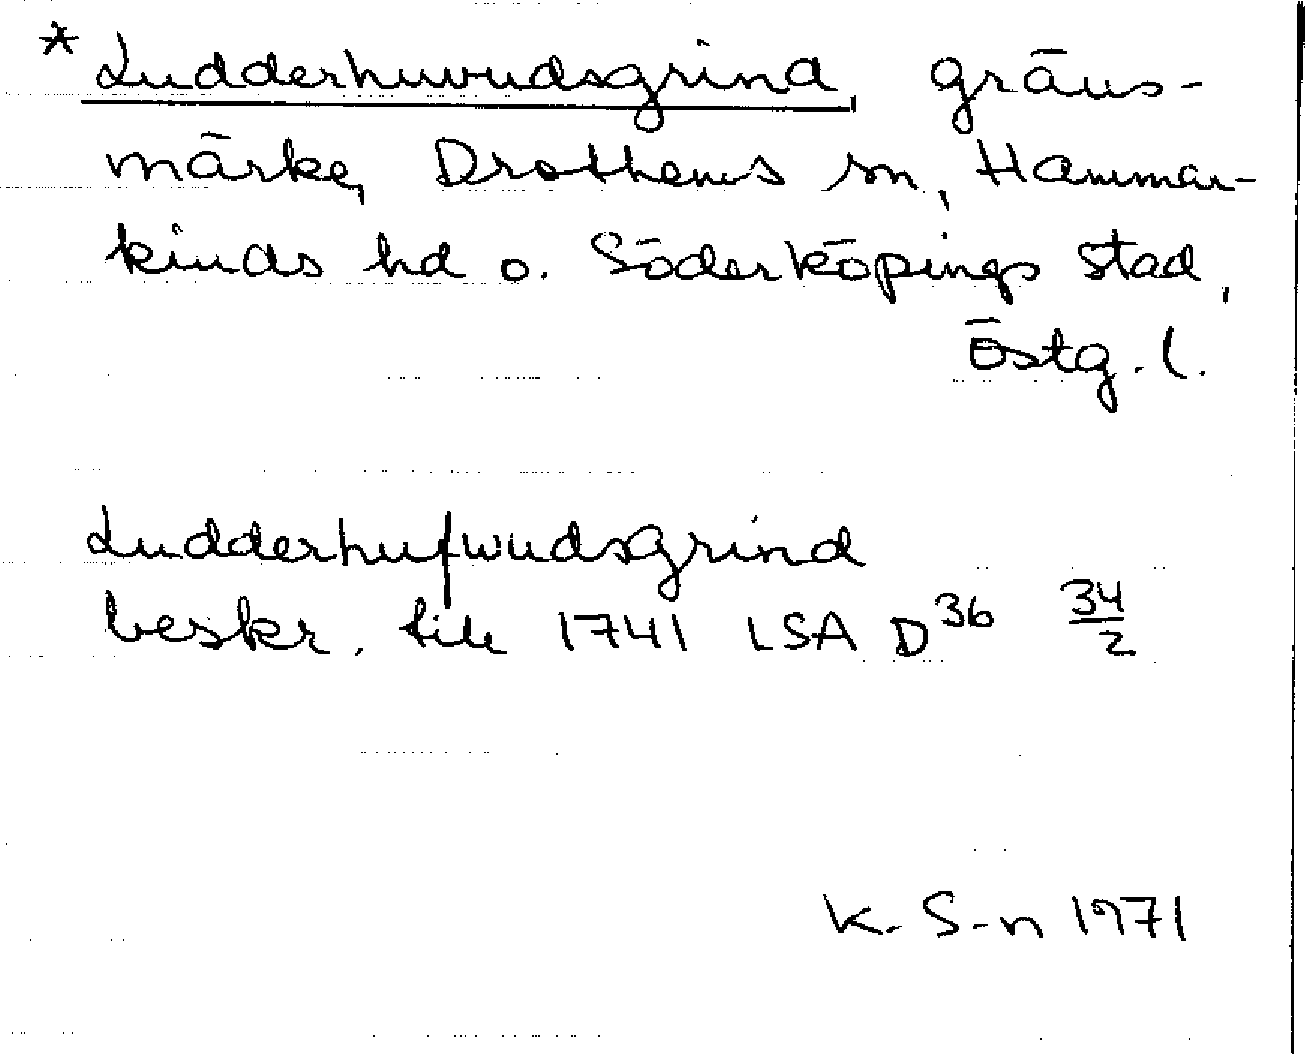 *Ludderhuvudsgrind, gräns-
märke, Drothems sn, Hammar-
kinds hd o. Söderköpings stad,
Östg. l.
Ludderhufwudsgrind
beskr. till 1741 LSA D36 34/2
K. S-n 1971